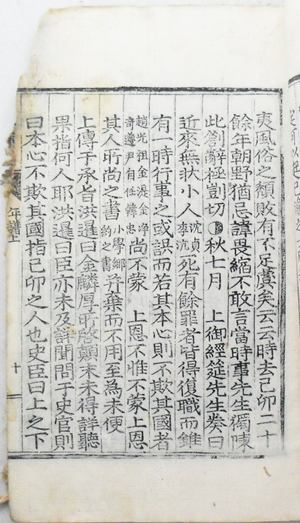 爽風俗之頹敗有不足虞矣云云時去己卯二十
餘年朝野猶忌諱畏縮不敢言當時事先生獨陳
此劄辭極剴切 秋七月 上御經筵先生奏曰
近來無狀小人沈貞李沆死有餘罪者皆得復職而雖
有一時行事之或誤而若其本心則不欺其國者
趙光祖金湜金淨奇遵尹自任韓忠尚不蒙 上恩不惟不蒙 上恩
其人所尚之書小學鄉約之書并棄而不用至為未便
上傳于承旨洪暹曰金麟厚所啓顛末未得詳聽
果指何人耶洪暹曰臣亦未及詳聞問于史官則
曰本心不欺其國指己卯之人也史臣曰上之下
年譜上
十